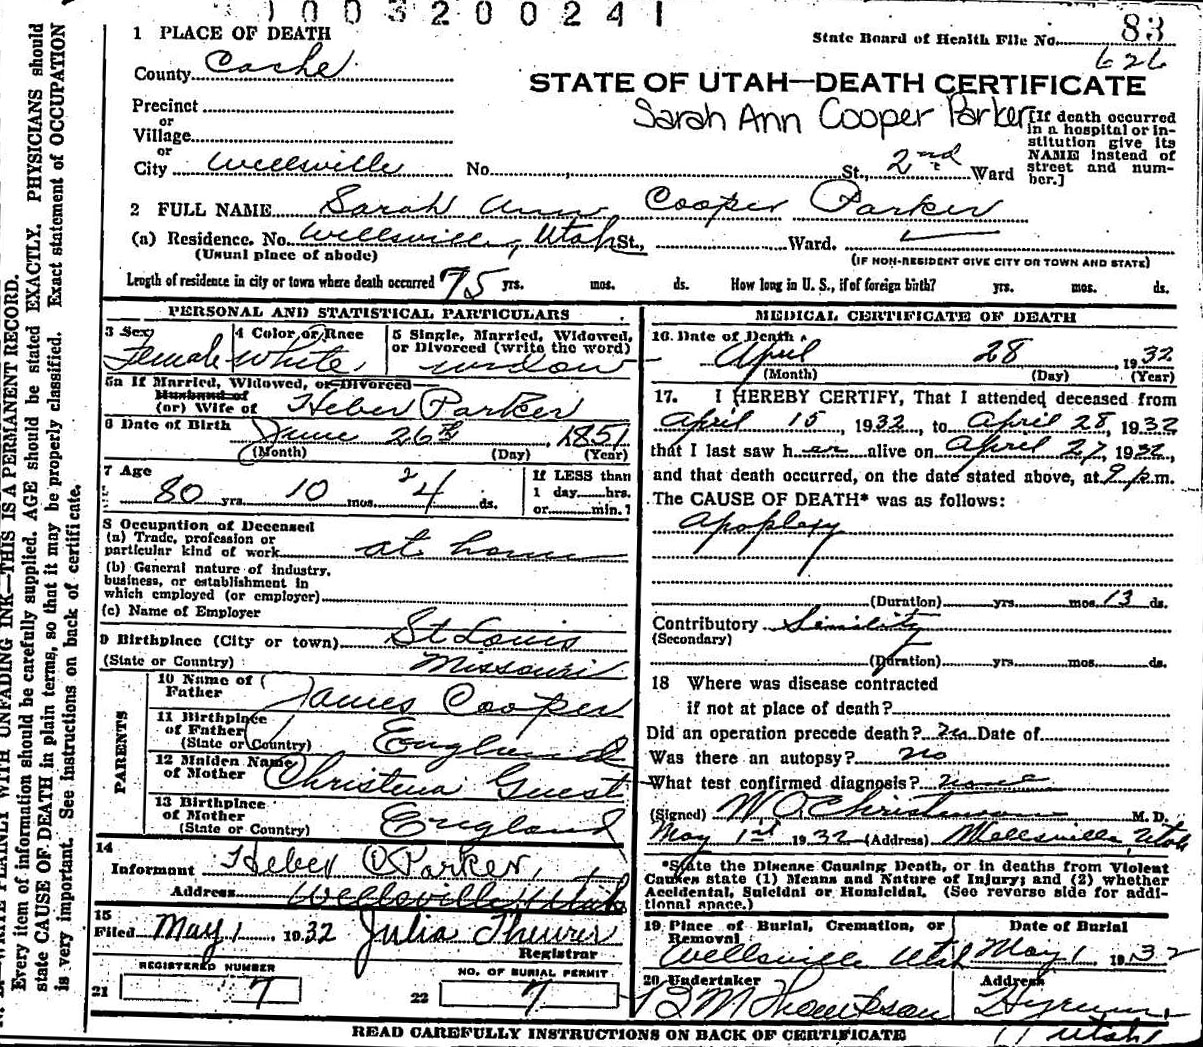 1003200241
83
State Board of Health File No.
626
1 PLACE OF DEATH
County Cache
STATE OF UTAH—DEATH CERTIFICATE
Sarah Ann Cooper Parker
Precinct
or
Village
or
City Wellsville No. St., 2nd Ward
[If death occurred
in a hospital or in-
stitution give its
NAME instead of
street and num-
ber.]
2 FULL NAME Sarah Ann Cooper Parker
(a) Residence. No. Wellsville, Utah St., Ward.
(Usual place of abode)
(IF NON-RESIDENT GIVE CITY OR TOWN AND STATE)
Length of residence in city or town where death occurred 75 yrs. mos. ds. How long in U. S., if of foreign birth? yrs. mos. ds.
PERSONAL AND STATISTICAL PARTICULARS
3 Sex
Female
4 Color or Race
White
5 Single, Married, Widowed,
or Divorced (write the word)
widow
5a If Married, Widowed, or Divorced
Husband of
(or) Wife of Heber Parker
6 Date of Birth June 26th, 1851
(Month) (Day) (Year)
7 Age
80 yrs. 10 mos. 24 ds.
If LESS than
1 day hrs.
or min.?
8 Occupation of Deceased
(a) Trade, profession or
particular kind of work at home
(b) General nature of industry,
business, or establishment in
which employed (or employer)
(c) Name of Employer
9 Birthplace (City or town) St Louis
(State or Country) Missouri
PARENTS
10 Name of
Father James Cooper
11 Birthplace
of Father
(State or Country) England
12 Maiden Name
of Mother Christena Guest
13 Birthplace
of Mother
(State or Country) England
14
Informant Heber C Parker,
Address Wellsville Utah
15
Filed May 1 1932 Julia Theurer
Registrar
REGISTERED NUMBER
21 7
NO. OF BURIAL PERMIT
22 7
MEDICAL CERTIFICATE OF DEATH
16 Date of Death
April 28, 1932
(Month) (Day) (Year)
17. I HEREBY CERTIFY, That I attended deceased from
April 15, 1932, to April 28, 1932
that I last saw her alive on April 27, 1932,
and that death occurred, on the date stated above, at 9 p.m.
The CAUSE OF DEATH* was as follows:
Apoplexy
(Duration) yrs. mos. 13 ds.
Contributory Senility
(Secondary)
(Duration) yrs. mos. ds.
18 Where was disease contracted
if not at place of death?
Did an operation precede death? No Date of
Was there an autopsy? no
What test confirmed diagnosis? none
(Signed) W. O. Christenson M. D.
May 1st 1932 (Address) Wellsville, Utah
*State the Disease Causing Death, or in deaths from Violent
Causes state (1) Means and Nature of Injury; and (2) whether
Accidental, Suicidal or Homicidal. (See reverse side for addi-
tional space.)
19 Place of Burial, Cremation, or
Removal
Wellsville Utah
Date of Burial
May 1 1932
20 Undertaker
Thompson
Address
Hyrum,
Utah
READ CAREFULLY INSTRUCTIONS ON BACK OF CERTIFICATE
WRITE PLAINLY WITH UNFADING INK—THIS IS A PERMANENT RECORD.
Every item of information should be carefully supplied. AGE should be stated EXACTLY. PHYSICIANS should
state CAUSE OF DEATH in plain terms, so that it may be properly classified. Exact statement of OCCUPATION
is very important. See instructions on back of certificate.